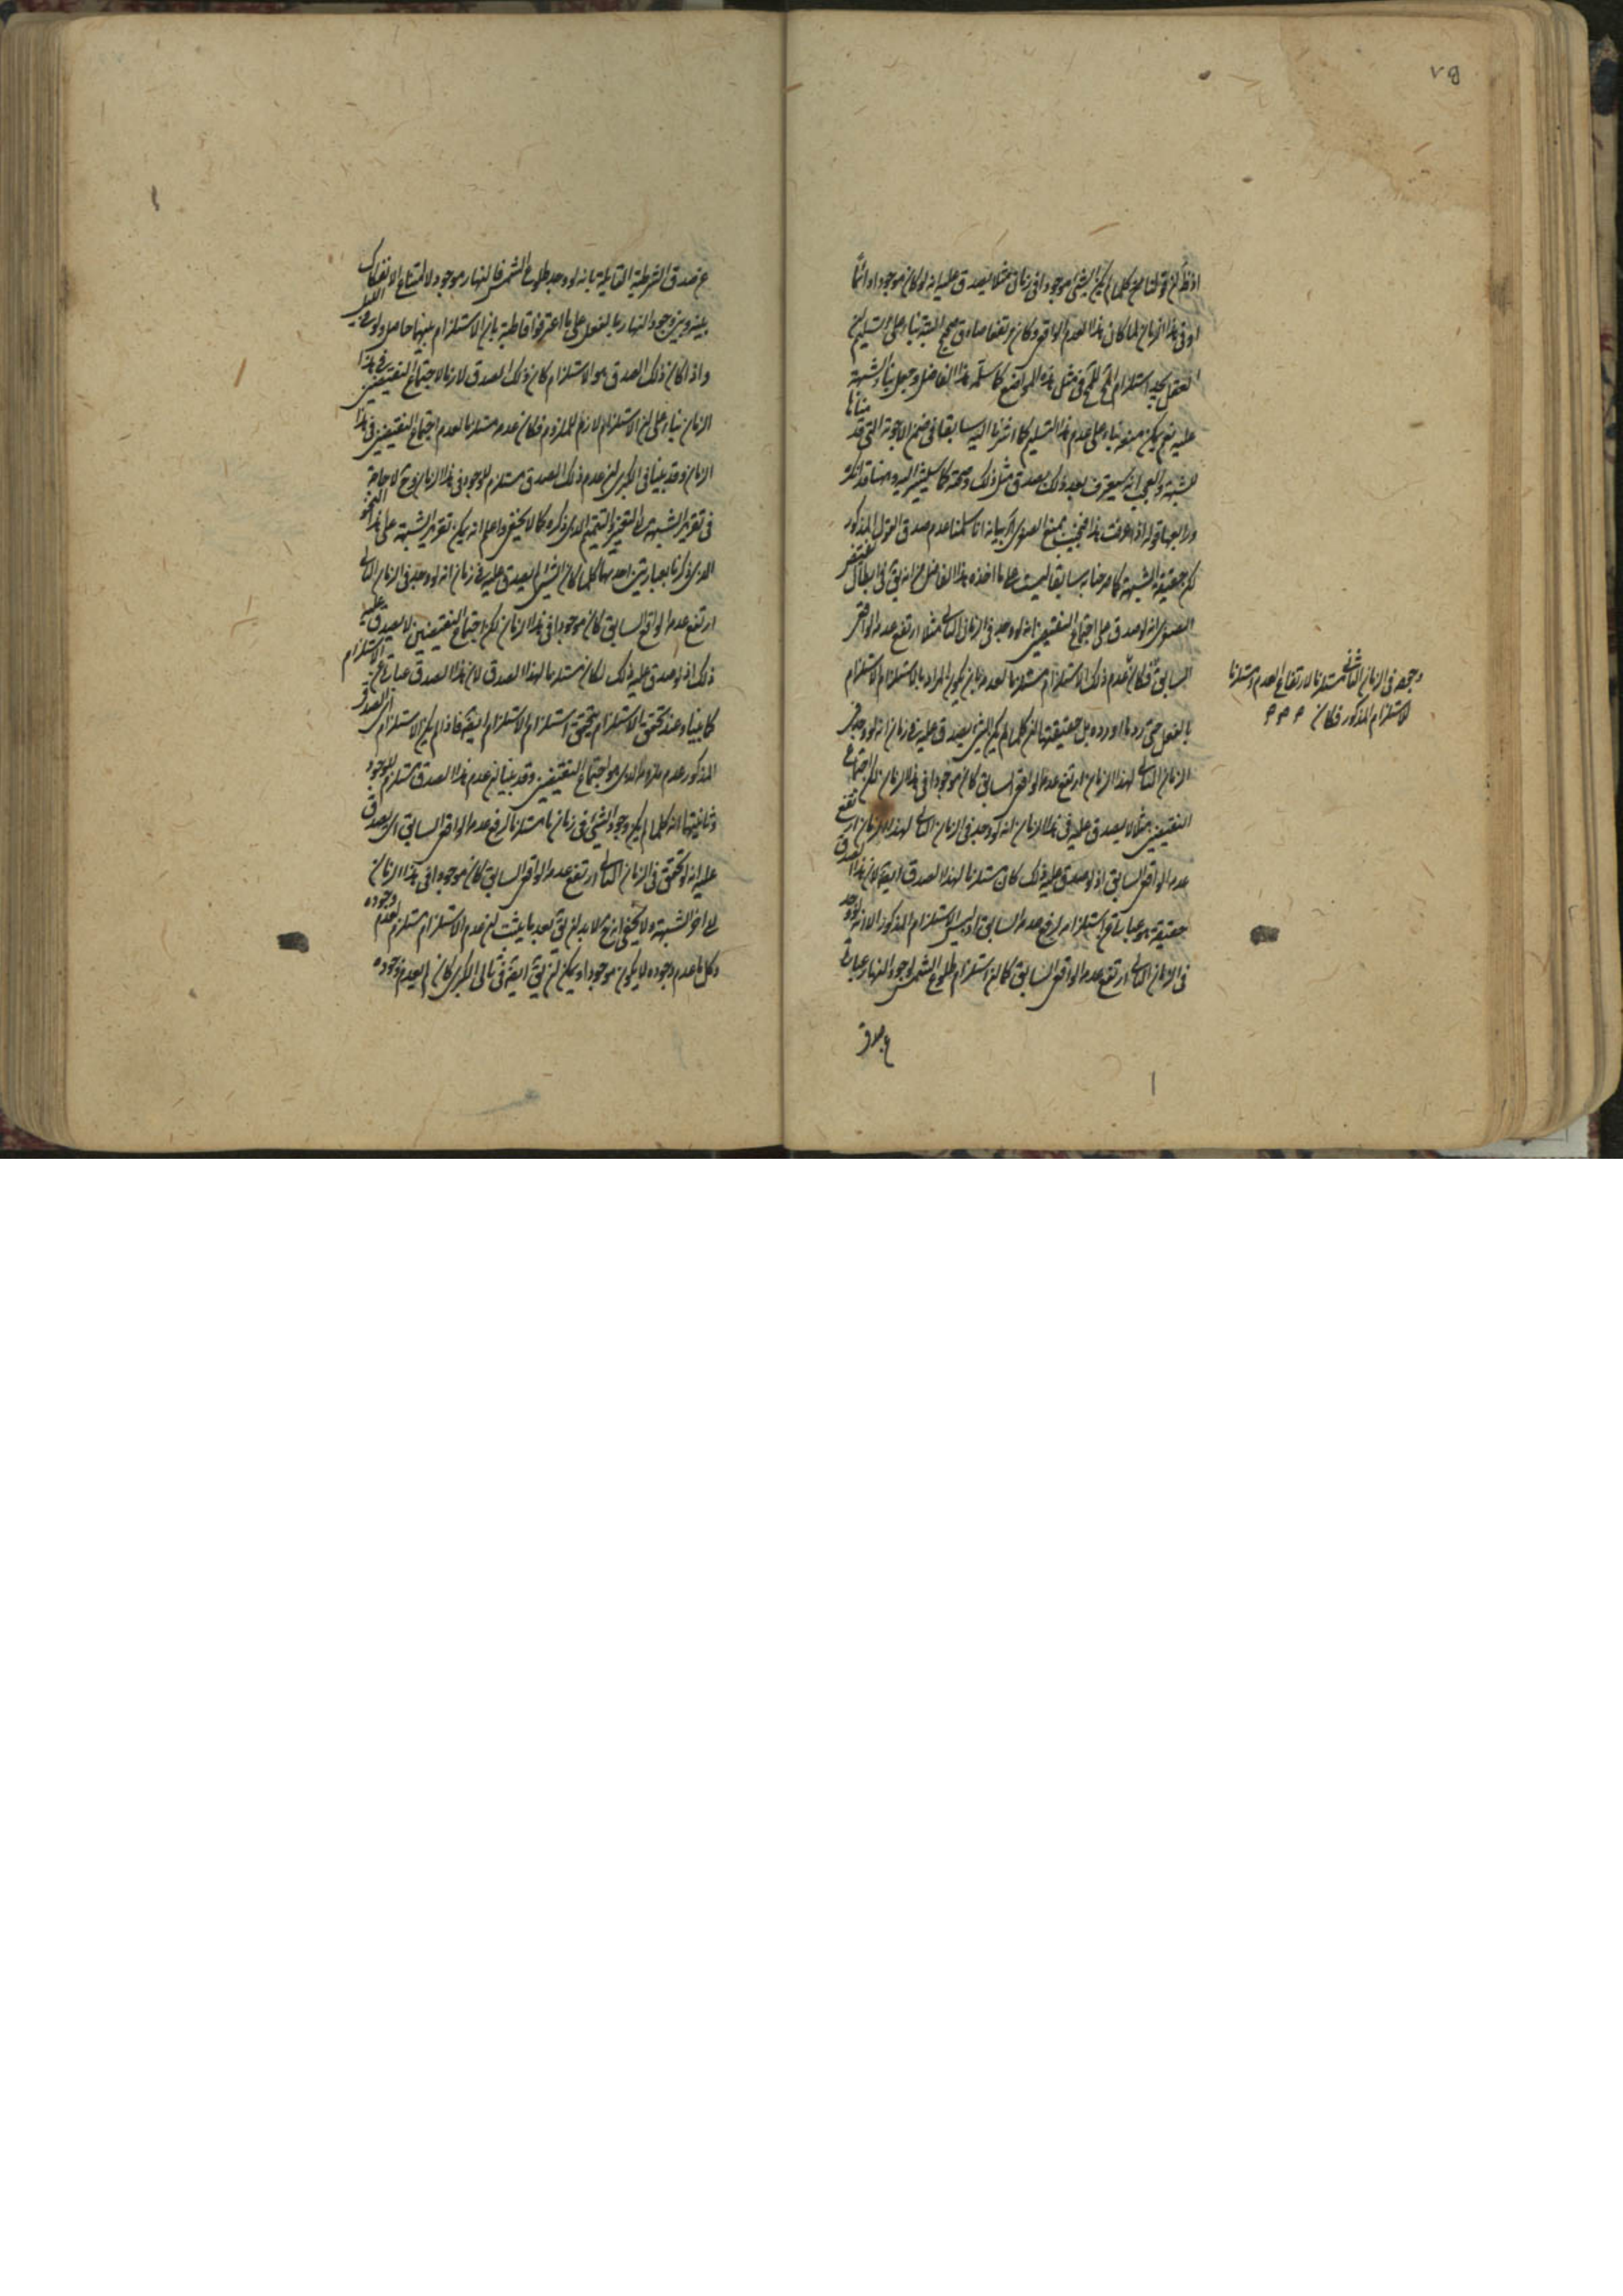 ٧٥
اذ نظر ان قولنا كلما لم يكن الشئ موجودا فى زمان مثلا يصدق عليه انه لو كان موجودا دائما
او فى هذا الزمان لما كان هذا العدم الواقع وكان مرتفعا صادق البتة بناء على تسليم ان
العقل استلزام المح للمح فى مثل هذه المواضع كما سلمه هذا الفاضل وجعل بناء الشبهة
عليه نعم يمكن منعه بناء على عدم هذا التسليم كما اشرنا اليه سابقا فى ضمن الاجوبة التى قد
للشبهة والعجب انه سيعترف بعد ذلك بصدق مثل ذلك وصحته كما سيشير اليه
ورابعها قوله اذا عرفت هذا فنجيب بمنع الصغرى بيانه انا سلمنا عدم صدق القول المذكور
لكن حقيقة الشبهة كما مر سابقا ليست على ما اخذه هذا الفاضل من انه يق فى ابطال
الصغرى انه لو صدق على اجتماع النقيضين انه لو وجد فى الزمان الثانى مثلا ارتفع عدمه الواقعى
السابق فكان عدم ذلك الاستلزام مستلزما لعدمه بان يكون المراد بالاستلزام الاستلزام
بالفعل حتى يرد ما اورده بل حقيقتها ان كلما لم يكن الشئ يصدق عليه فى زمان انه لو وجد فى
الزمان الثانى لهذا الزمان ارتفع عدمه الواقعى السابق كان موجودا فى هذا الزمان لكن اجتماع
النقيضين مثلا لا يصدق عليه فى هذا الزمان انه لو وجد فى الزمان الثانى لهذا الزمان ارتفع
عدمه الواقعى السابق اذ لو صدق عليه ذلك كان مستلزما لهذا الصدق ايضا لان هذا الصدق
حقيقة هو عبارة عن استلزامه لرفع عدمه السابق اذ ليس الاستلزام المذكور الا انه لو وجد
فى الزمان الثانى ارتفع عدمه الواقعى السابق كما ان استلزام طلوع الشمس لوجود النهار عبارة
عن صدق
وجوده فى الزمان الثانى مستلزما لارتفاع العدم ومستلزما
للاستلزام المذكور فكان
عن صدق الشرطية القائلة بانه لو وجد طلوع الشمس فالنهار موجود لامتناع الانفكاك
بينه وبين وجود النهار بالفعل على ما اعترفوا قاطبة بان الاستلزام بينهما حاصل ولو فى الليل
واذا كان ذلك الصدق هو الاستلزام كان ذلك الصدق لازما لاجتماع النقيضين فى هذا
الزمان بناء على ان الاستلزام لازم للملزوم فكان عدمه مستلزما لعدم اجتماع النقيضين فى هذا
الزمان وقد بينا فى الكبرى ان عدم ذلك الصدق مستلزم لوجوده فى هذا الزمان وح لا حاجة
فى تقرير الشبهة الى التغيير والتتميم الذى ذكره كما لا يخفى واعلم انه يمكن تقرير الشبهة على هذا النحو
الذى ذكرنا بعبارتين احديهما كلما كان الشئ لم يصدق عليه فى زمان انه لو وجد فى الزمان الثانى
ارتفع عدمه الواقع السابق كان موجودا فى هذا الزمان لكن اجتماع النقيضين لا يصدق عليه
ذلك اذ لو صدق عليه ذلك لكان مستلزما لهذا الصدق لان هذا الصدق عبارة عن الاستلزام
كما بيناه وعند تحقق الاستلزام يتحقق استلزام الاستلزام ايضا فاذا لم يكن الاستلزام اى الصدق
المذكور عدم ملزومه الذى هو اجتماع النقيضين وقد بينا ان عدم هذا الصدق مستلزم للوجود
وثانيتهما انه كلما لم يكن وجود الشئ فى زمان ما مستلزما لرفع عدمه الواقعى السابق اى يصدق
عليه انه لو تحقق فى الزمان الثانى ارتفع عدمه الواقعى السابق كان موجودا فى هذا الزمان
الى اخر الشبهة ولا يخفى انه ح لا بد ان يق بعد ما يثبت ان عدم الاستلزام مستلزم لعدم وجوده
وكل ما عدم وجوده لا يكون موجودا ويمكن ان يق ايضا فى تالى الكبرى كان لم يعدم وجوده